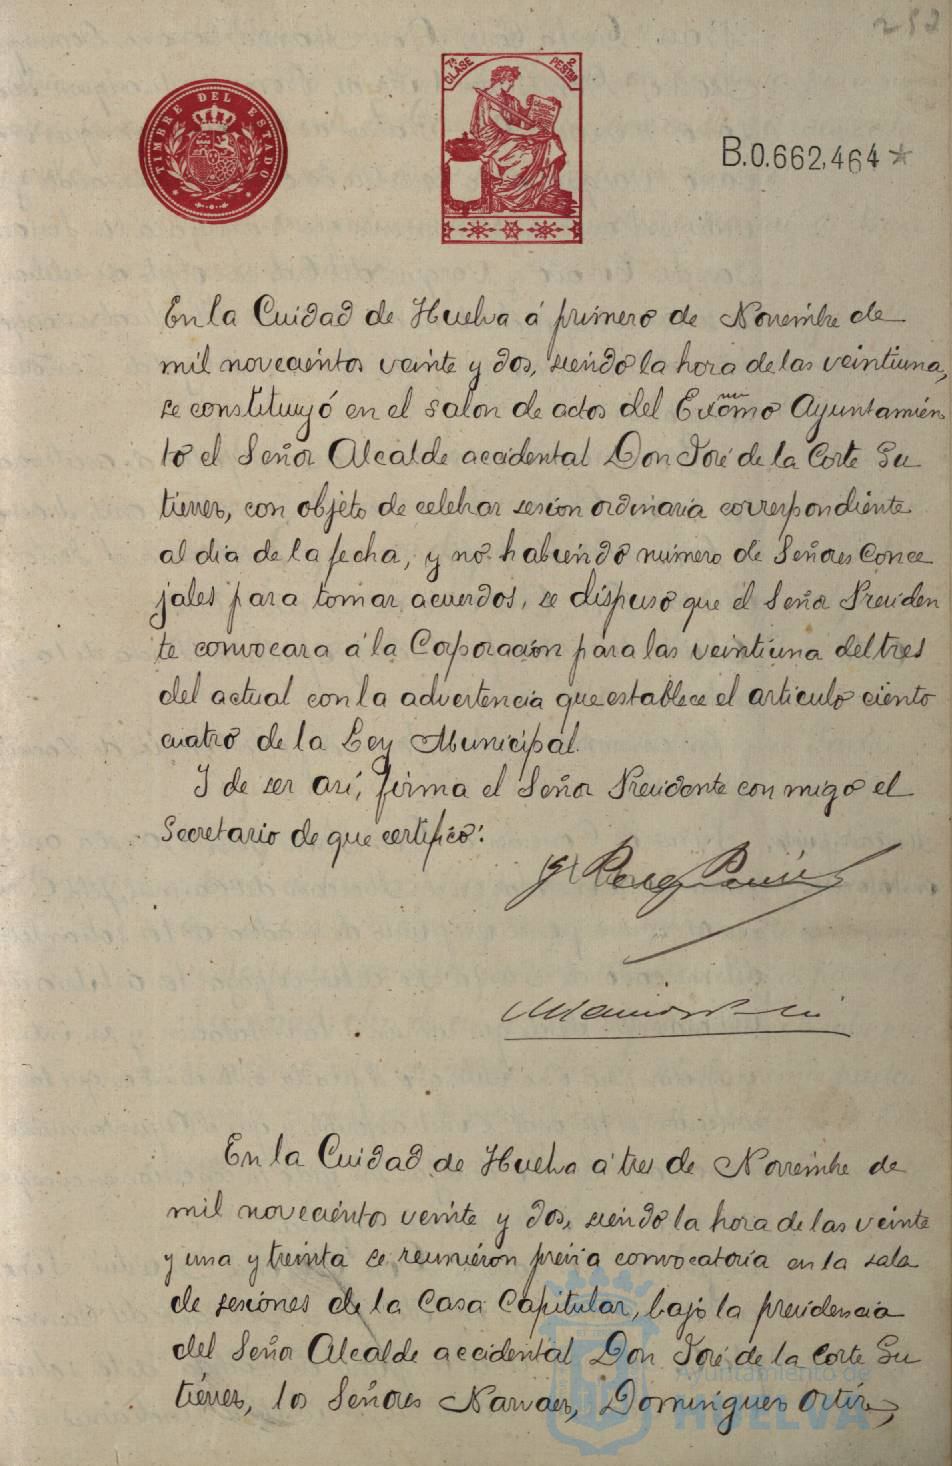 252
TIMBRE DEL ESTADO
7ª CLASE 2 PESETAS
B.0.662,464*
En la Cuidad de Huelva á primero de Noviembre de
mil novecientos veinte y dos, siendo la hora de las veintiuna,
se constituyó en el salon de actos del Exmo Ayuntamien
to el Señor Alcalde accidental Don José de la Corte Gu
tierres, con objeto de celebrar sesion ordinaria correspondiente
al dia de la fecha, y no habiendo número de Señores Conce
jales para tomar acuerdos, se dispuso que el Señor Presiden
te convocara á la Corporación para las veintiuna del tres
del actual con la advertencia que establece el articulo ciento
cuatro de la Ley Municipal.
Y de ser así, firma el Señor Presidente con migo el
Secretario de que certifico:
En la Cuidad de Huelva á tres de Noviembre de
mil novecientos veinte y dos, siendo la hora de las veinte
y una y treinta se reunieron previa convocatoria en la sala
de sesiones de la Casa Capitular, bajo la presidencia
del Señor Alcalde accidental Don José de la Corte Gu
tierres, los Señores Narvaes, Domingues Ortir,
Ayuntamiento de
HUELVA